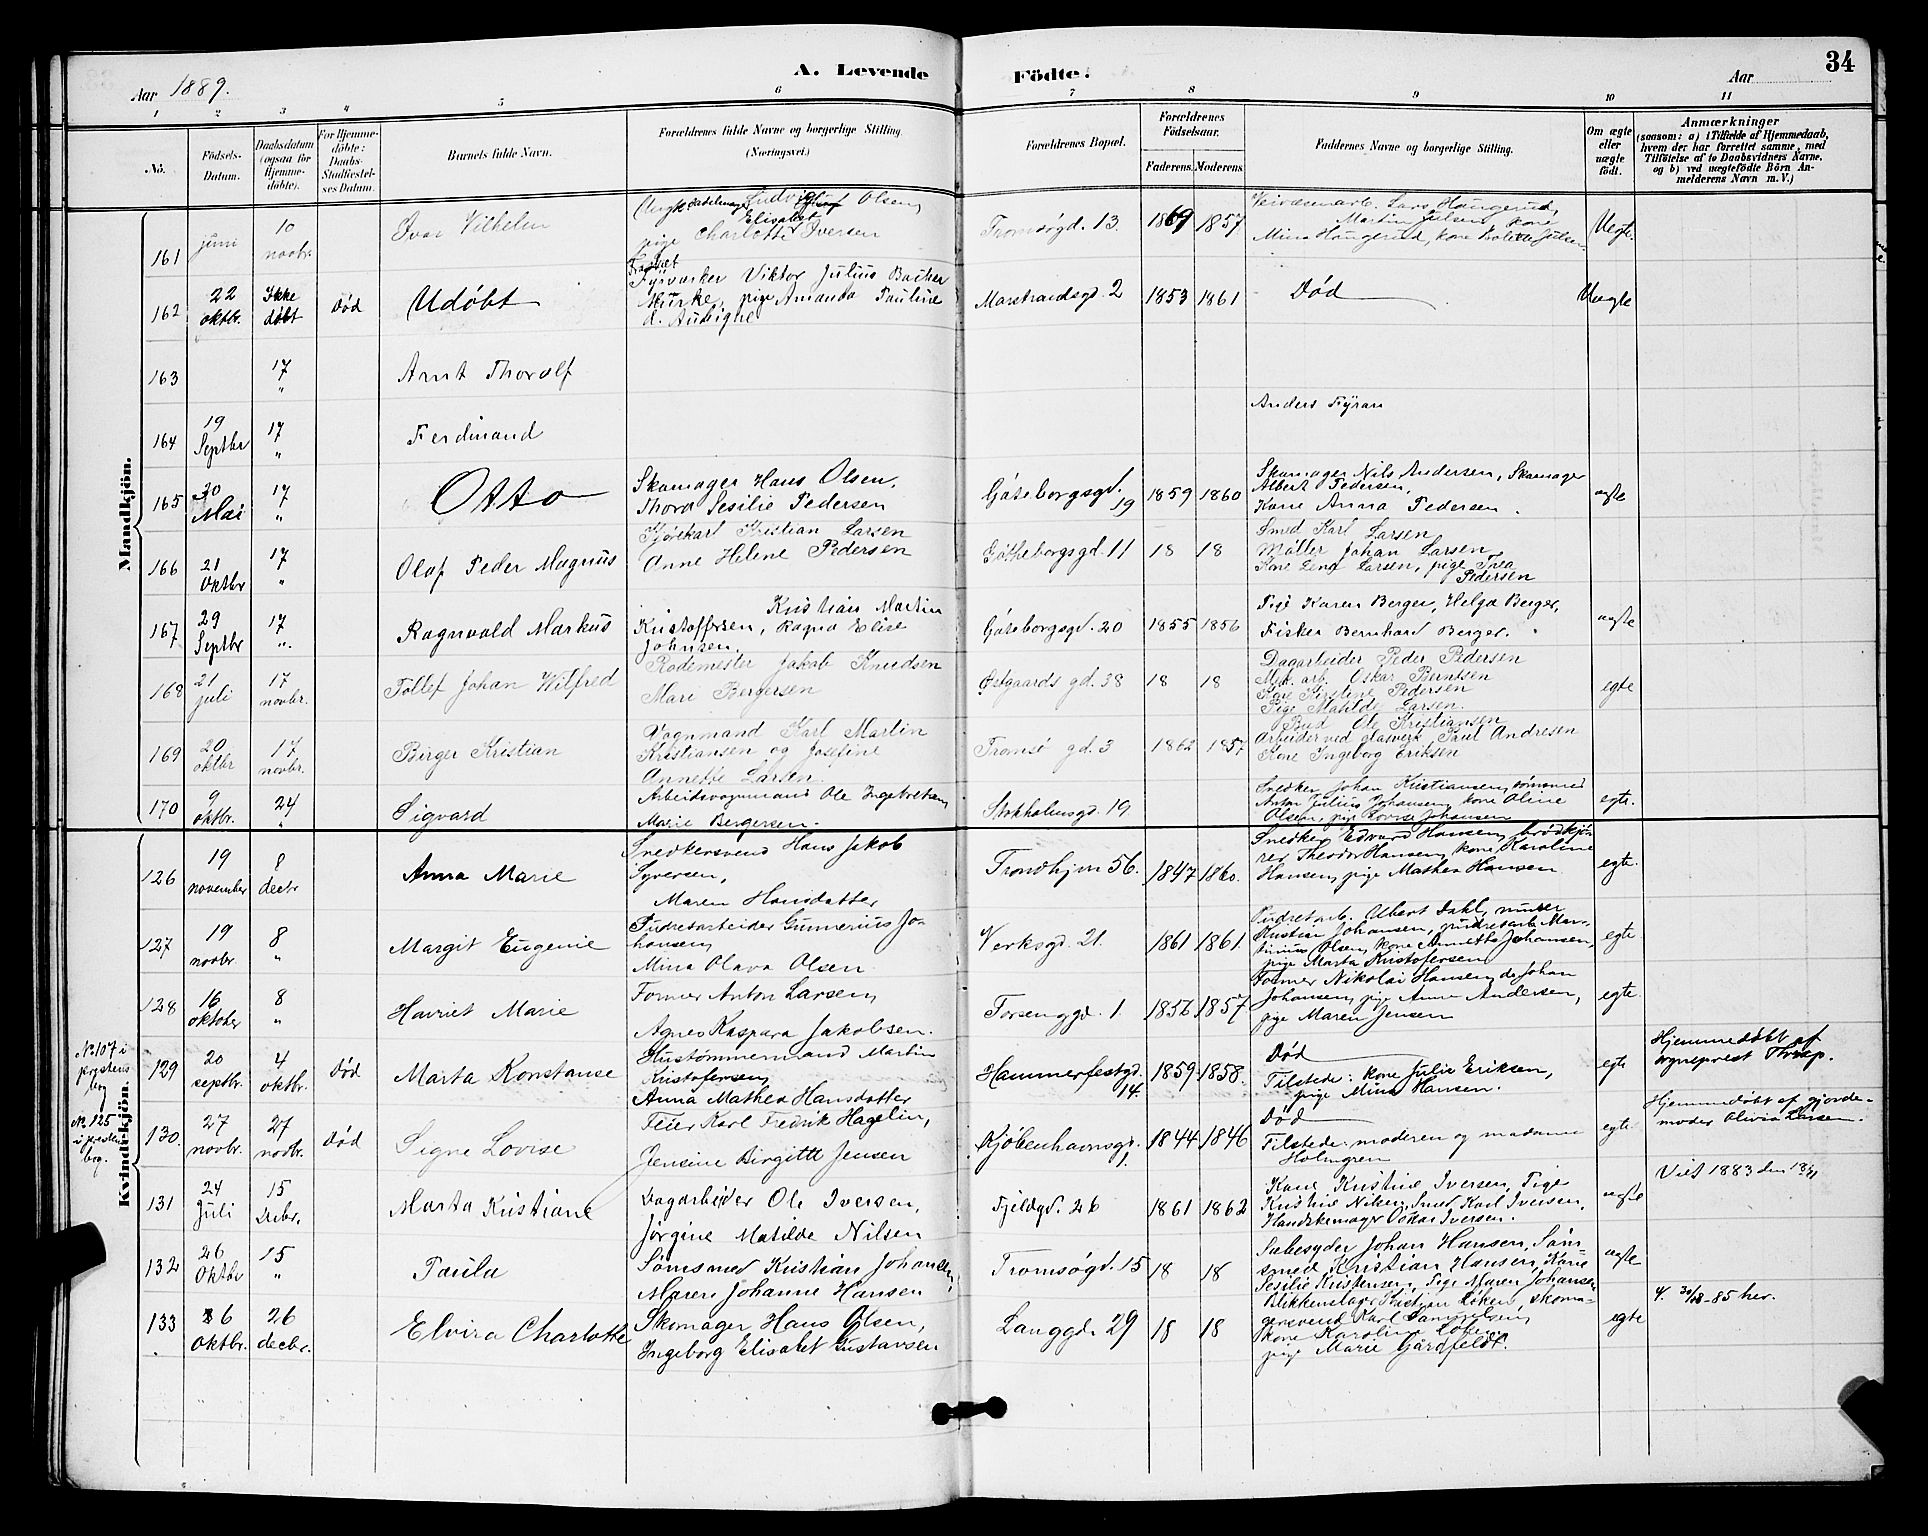 34
A. Levende Födte.
Aar 1889.
Aar
1 2 3 4 5 6 7 8 9 10 11
No.
Födsels-Datum.
Daabsdatum (ogsaa for Hjemme-döbte).
For Hjemme-döbte: Daabs-Stadfæstel-ses Datum.
Barnets fulde Navn.
Forældrenes fulde Navne og borgerlige Stilling. (Næringsvei.)
Forældrenes Bopæl.
Forældrenes Födselsaar.
Faderens. Moderens.
Faddernes Navne og borgerlige Stilling.
Om ægte eller uægte födt.
Anmærkninger (saasom: a) i Tilfælde af Hjemmedaab, hvem der har forrettet samme, med Tilföielse af to Daabsvidners Navne, og b) ved uægtefödte Börn An-melderens Navn m. V.)
Mandkjön.
161 juni 10 novbr. Ivar Vilhelm Ludvig Olsen, pige Elisabet Charlotte Iversen Tromsøgd. 13. 1869 1857 Lars Haugerud, Martin Julsen, kone Mina Haugerud, kone Uegte.
162 22 oktbr. Ikke døbt Død Udøbt Fyrvarker Viktor Julius pige Amanda Pauline d. Aubigne Marstrandsgd. 2 1853 1861 Død Uegte
163 17 " Arnt Thorolf
164 19 Septbr 17 " Ferdinand Anders Fyran
165 20 Mai 17 " Otto Skomager Hans Olsen, Thora Sesilie Pedersen Göteborgsgd. 19 1859 1860 Skomager Nils Andersen, Skomager Albert Pedersen, Kone Anna Pedersen. egte
166 21 Oktbr 17 " Olaf Peder Magnus Kjørekarl Kristian Larsen Anne Helene Pedersen Gøtheborgsgd. 11 18 18 Smed Karl Larsen Møller Johan Larsen Kone Larsen, pige Thea Pedersen
167 29 Septbr 17 ". Ragnvald Markus Kristian Martin Kristoffersen, Ragna Elise Johnsen. Göteborgsgd. 20 1855 1856 Pige Karen Berger, Helga Berger, Fisker Bernhard Berger. egte
168 21 juli 17 novbr. Tollef Johan Wilfred Rodemester Jakob Knudsen Mari Bergersen Østgaards gd. 38 18 18 Dagarbeider Peder Pedersen Mek. arb. Oskar Berntsen Kone Kirstine Pedersen Pige Matilde Larsen. egte
169 20 oktbr 17 novbr. Birger Kristian Vognmand Karl Martin Kristiansen og Josefine Annette Larsen. Tromsø gd. 3 1862 1857 Bud Ole Kristiansen Arbeider ved glasverk Paul Andresen Kone Ingeborg Eriksen
170 9 oktbr. 24 " Sigvard Arbeidsvognmand Ole Ingebretsen, Marie Bergersen. Stokholmsgd. 19 Snedker Johan Kristiansen, tømmermd Anton Julius Johansen, kone Oline Olsen, pige Lovise Johansen egte.
Kvindekjön.
126 19 november 8 decbr Anna Marie Snedkersvend Hans Jakob Syversen, Maren Hansdatter Trondhjm 56. 1847 1860. Snedker Edvard Hansen, brødkjø-rer Theodor Hansen, kone Karoline Hansen, pige Mathea Hansen egte.
127 19 novbr. 8 " Margit Eugenie Pudretarbeider Gunnerius Jo-hansen, Mina Olava Olsen Verksgd. 21. 1861 1861. Pudretarb. Albert Dahl, murer Kristian Johansen, pudretarb. Mar-tinius Olsen, kone Annette Johansen, pige Marta Kristofersen egte
128 16 oktober 8 " Harriet Marie Former Anton Larsen, Agnes Kaspara Jakobsen. Torsenggd. 1. 1856 1857 Former Nikolai Hansen, do Johan Johansen, pige Anna Andersen, pige Maren Jensen egte.
No. 107 i prestens bog
129 20 septbr. 4 oktbr. Død Marta Konstanse Hustømmermand Martin Kristofersen, Anna Mathea Hansdatter Hammerfestgd. 14. 1859 1858. Død Tilstede: kone Julie Eriksen, pige Mina Hansen. egte Hjemmedøbt af sogneprest Thrap.
No. 125 i prestens bog.
130. 27 novbr. 27 novbr. Død Signe Lovise Feier Karl Fredrik Hagelin, Jensine Birgitte Jensen Kjøbenhavnsgd. 1. 1844 1846 Død Tilstede: moderen og madame Holmgren egte Hjemmedøbt af gjorde-moder Olivia Larsen.
131 24 Juli 15 Decbr. Marta Kristiane Dagarbeider Ole Iversen, Jørgine Matilde Nilsen Fjeldgd. 26 1861 1862 Kone Kristine Iversen, Pige Kristine Nilsen, Smed Karl Iversen, Handskemager Oskar Iversen. egte Viet 1883 den
132 26 Oktbr 15 " Paula Sømsmed Kristian Johansen, Maren Johanne Hansen Tromsøgd. 15 18 18 Sæbesyder Johan Hansen, Søm-smed Kristian Hansen, Kone Sesilie Kristensen, Pige Maren Johansen egte
133 26 Oktbr. 26 decbr. Elvira Charlotte Skomager Hans Olsen, Ingeborg Elisabet Gustavsen Langgd. 29 18 18 Blikkenslager Kristian Løken, skoma-gersvend Karl kone Karoline pige Marie Gårdfeldt. egte